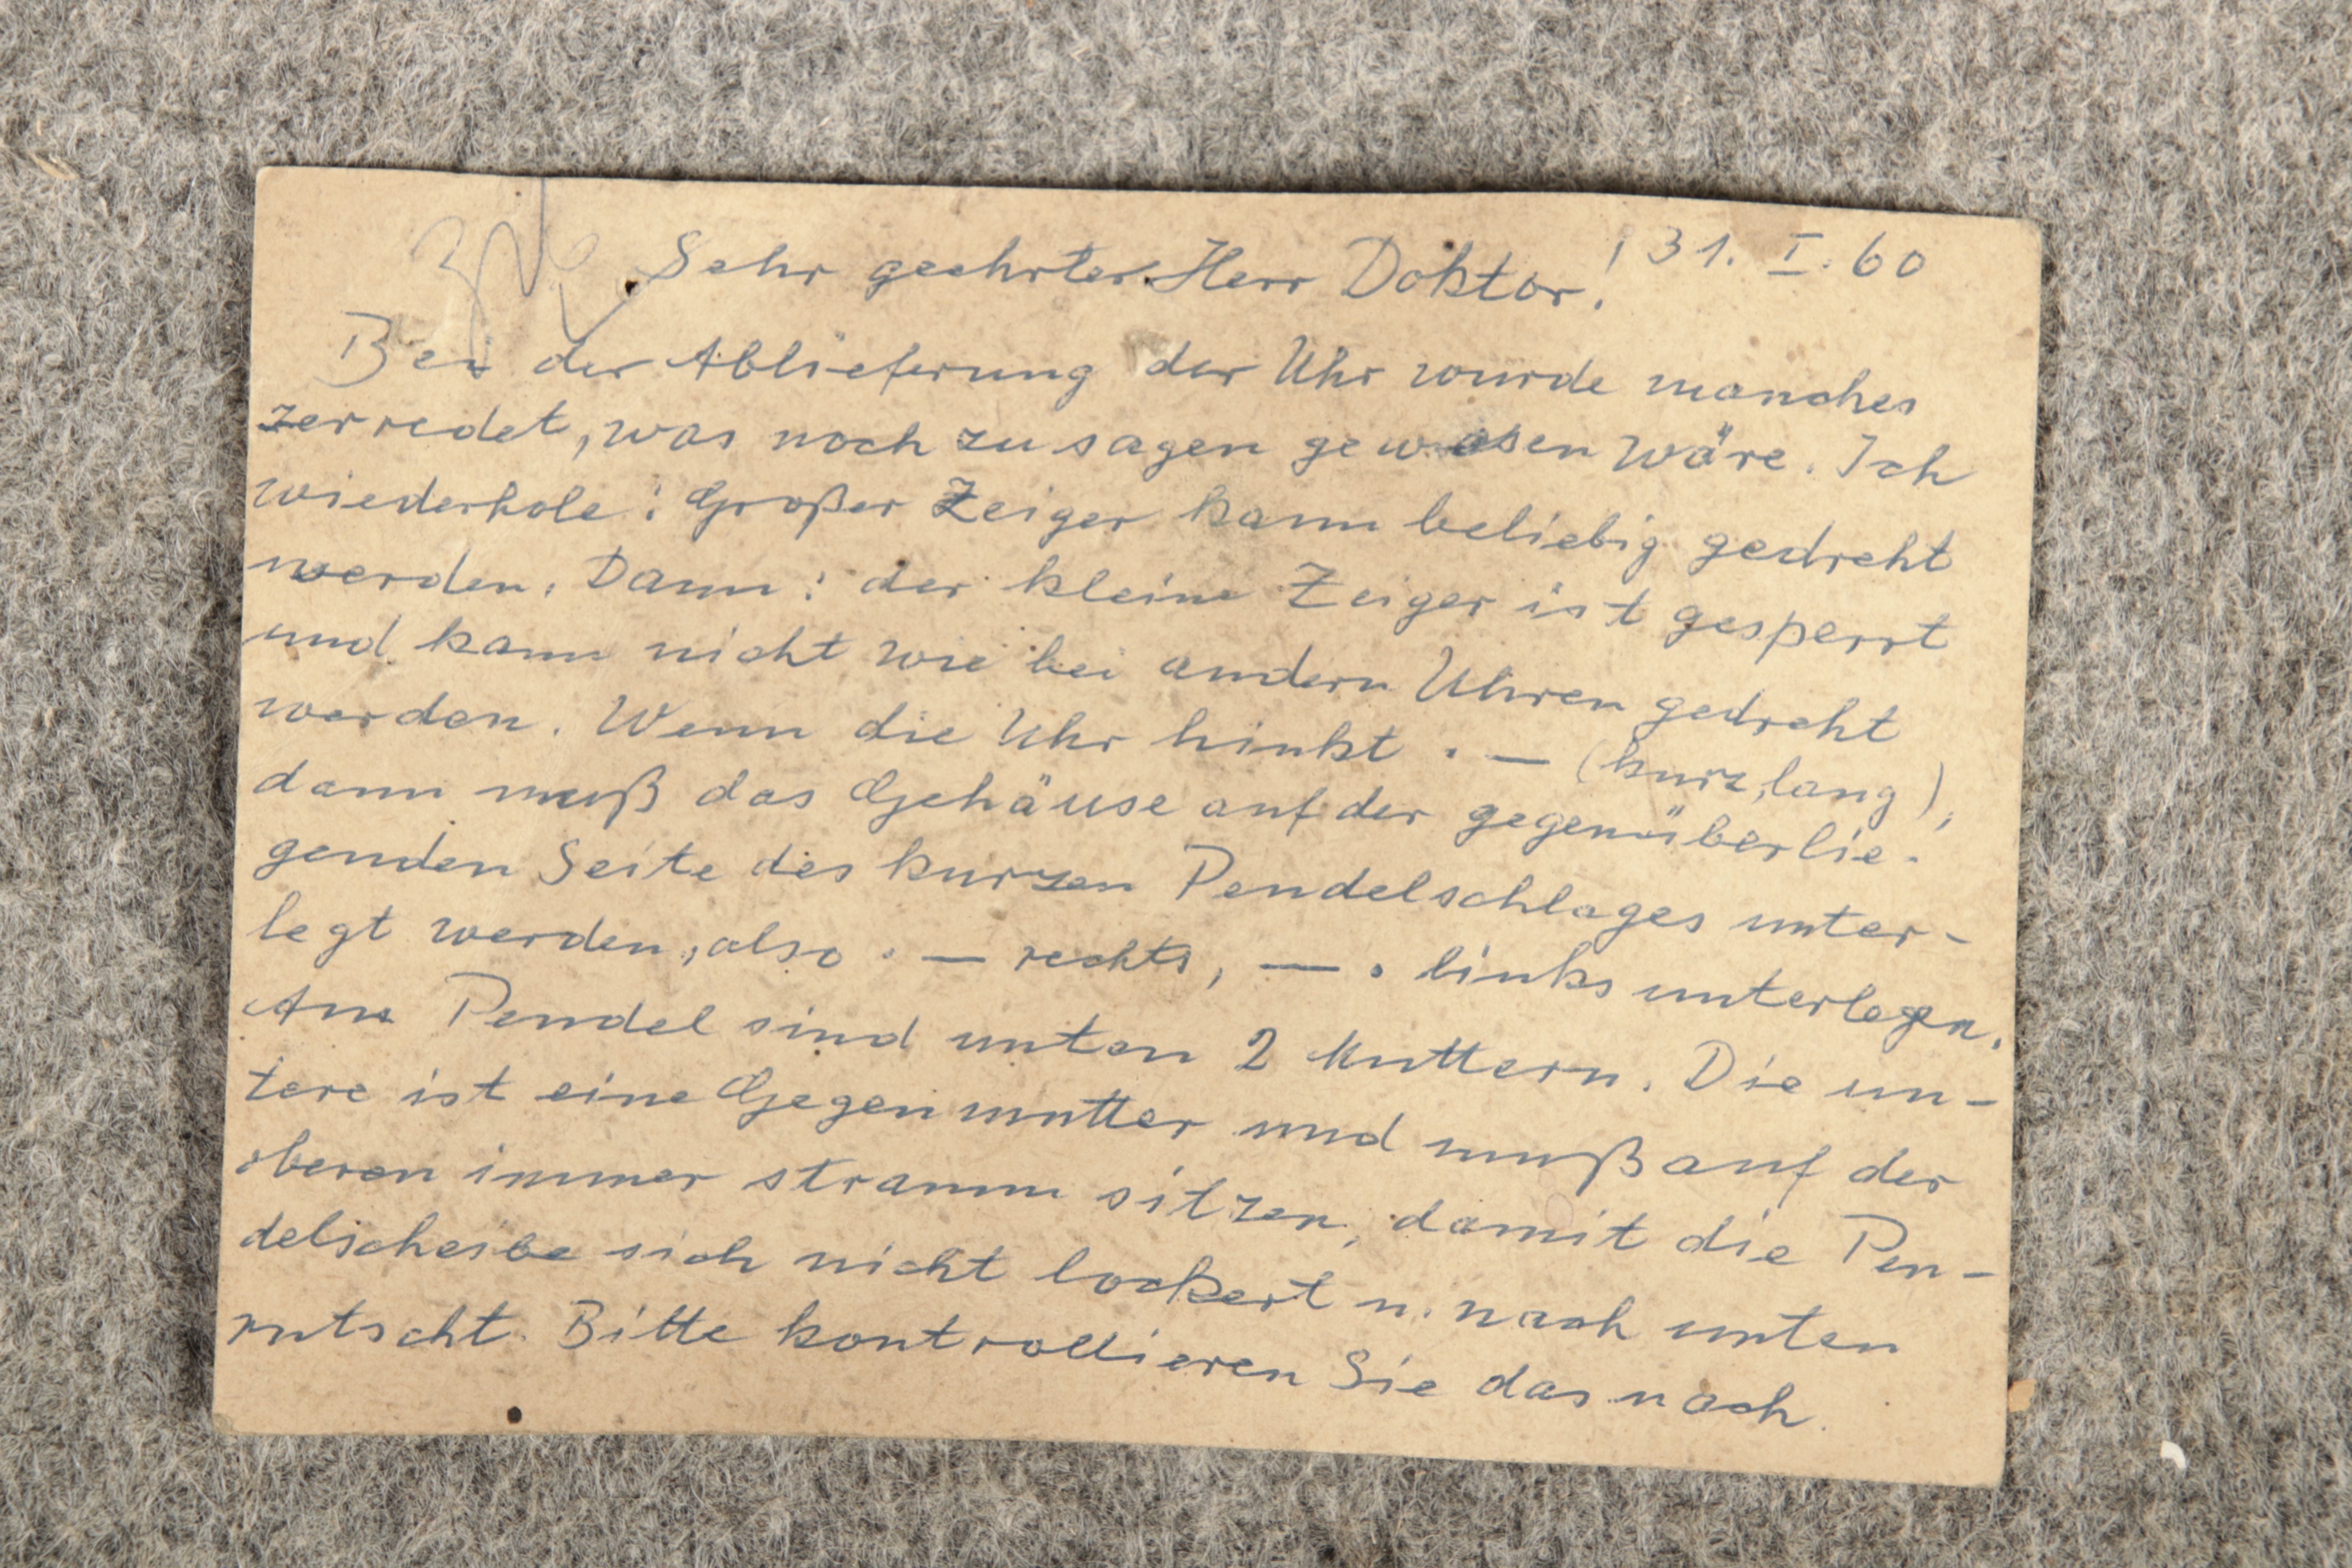 Sehr geehrter Herr Doktor! 31. I. 60
Bei der Ablieferung der Uhr wurde manches
zerredet, was noch zu sagen gewesen wäre. Ich
wiederhole: Großer Zeiger kann beliebig gedreht
werden. Dann: der kleine Zeiger ist gesperrt
und kann nicht wie bei andern Uhren gedreht
werden. Wenn die Uhr hinkt . — (kurz, lang),
dann muß das Gehäuse auf der gegenüberlie-
genden Seite des kurzen Pendelschlages unter-
legt werden, also . — rechts, — . links unterlegen.
Am Pendel sind unten 2 Muttern. Die un-
tere ist eine Gegenmutter und muß auf der
oberen immer stramm sitzen, damit die Pen-
delscheibe sich nicht lockert u. nach unten
rutscht. Bitte kontrollieren Sie das nach.